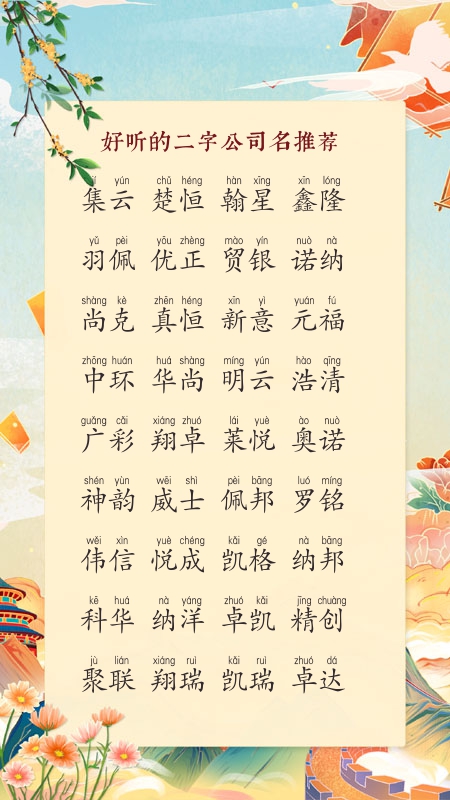 好听的二字公司名推荐
yún chǔ héng hàn xīng xīn lóng
集云 楚恒 翰星 鑫隆
yǔ pèi yōu zhèng mào yín nuò nà
羽佩 优正 贸银 诺纳
shàng kè zhēn héng xīn yì yuán fú
尚克 真恒 新意 元福
zhōng huán huá shàng míng yún hào qīng
中环 华尚 明云 浩清
guǎng cǎi xiáng zhuó lái yuè ào nuò
广彩 翔卓 莱悦 奥诺
shén yùn wēi shì pèi bāng luó míng
神韵 威士 佩邦 罗铭
wěi xìn yuè chéng kǎi gé nà bāng
伟信 悦成 凯格 纳邦
kē huá nà yáng zhuó kǎi jīng chuàng
科华 纳洋 卓凯 精创
jù lián xiáng ruì kǎi ruì zhuó dá
聚联 翔瑞 凯瑞 卓达